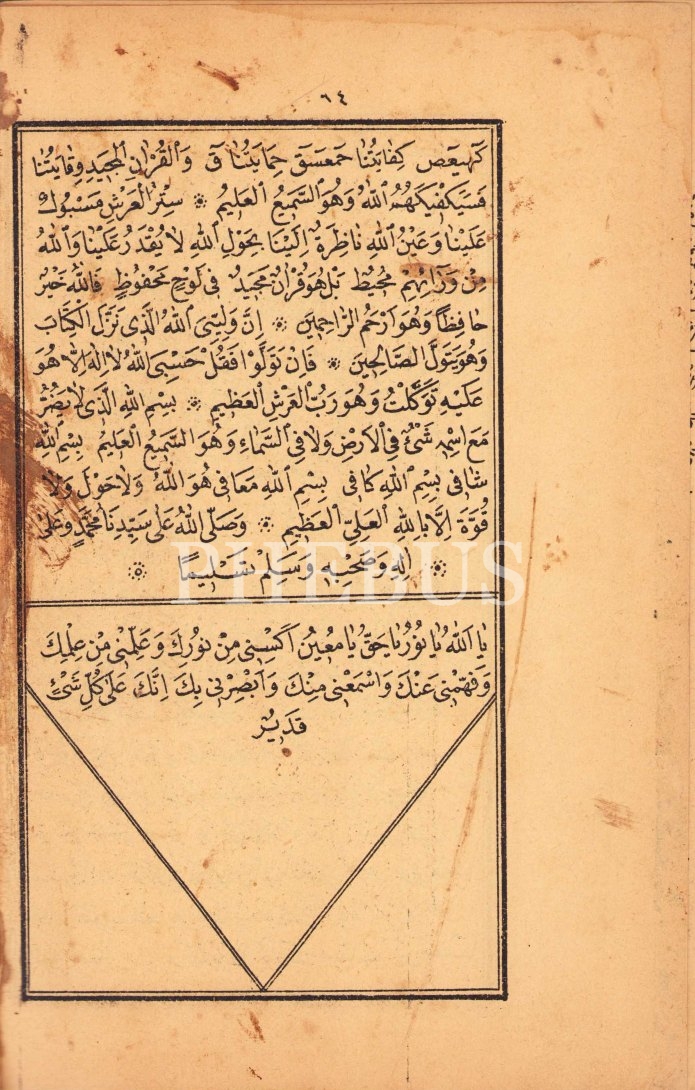 ٦٤
كٓهٰيٰعٓصٓ كِفَايَتُنَا حٰمٓعٓسٓقٓ حِمَايَتُنَا قٓ وَالْقُرْاٰنِ الْمَجِيدِ وِقَايَتُنَا
فَسَيَكْفِيكَهُمُ اللّٰهُ وَهُوَ السَّمِيعُ الْعَلِيمُ ۞ سِتْرُ الْعَرْشِ مَسْبُولٌ
عَلَيْنَا وَعَيْنُ اللّٰهِ نَاظِرَةٌ اِلَيْنَا بِحَوْلِ اللّٰهِ لَا يُقْدَرُ عَلَيْنَا وَاللّٰهُ
مِنْ وَرَائِهِمْ مُحِيطٌ بَلْ هُوَ قُرْاٰنٌ مَجِيدٌ فِى لَوْحٍ مَحْفُوظٍ فَاللّٰهُ خَيْرٌ
حَافِظًا وَهُوَ اَرْحَمُ الرَّاحِمِينَ ۞ اِنَّ وَلِيِّىَ اللّٰهُ الَّذِى نَزَّلَ الْكِتَابَ
وَهُوَ يَتَوَلَّ الصَّالِحِينَ ۞ فَاِنْ تَوَلَّوْا فَقُلْ حَسْبِىَ اللّٰهُ لَا اِلٰهَ اِلَّا هُوَ
عَلَيْهِ تَوَكَّلْتُ وَهُوَ رَبُّ الْعَرْشِ الْعَظِيمِ ۞ بِسْمِ اللّٰهِ الَّذِى لَا يَضُرُّ
مَعَ اسْمِهِ شَئٌ فِى الْاَرْضِ وَلَا فِى السَّمَاءِ وَهُوَ السَّمِيعُ الْعَلِيمُ بِسْمِ اللّٰهِ
شَافِى بِسْمِ اللّٰهِ كَافِى بِسْمِ اللّٰهِ مَعَافِى هُوَ اللّٰهُ وَلَا حَوْلَ وَلَا
قُوَّةَ اِلَّا بِاللّٰهِ الْعَلِىِّ الْعَظِيمِ ۞ وَصَلَّى اللّٰهُ عَلَى سَيِّدِنَا مُحَمَّدٍ وَعَلَى
اٰلِهِ وَصَحْبِهِ وَسَلِّمْ تَسْلِيمًا
PHEBUS
يَا اَللّٰهُ يَا نُوْرُ يَا حَقُّ يَا مُعِينُ اَكْسِنِى مِنْ نُورِكَ وَعَلِّمْنِى مِنْ عِلْمِكَ
وَفَهِّمْنِى عَنْكَ وَاسْمَعْنِى مِنْكَ وَاَبْصِرْنِى بِكَ اِنَّكَ عَلَى كُلِّ شَئٍ
قَدِيرٌ